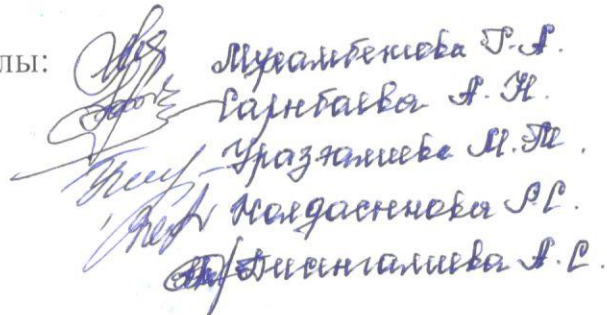 лы: Мухамбетова Г. А.
Сарнбаева А. Н.
Уразгалиева М. Т.
Колдасенова Р. С.
Бисингалиева А. С.